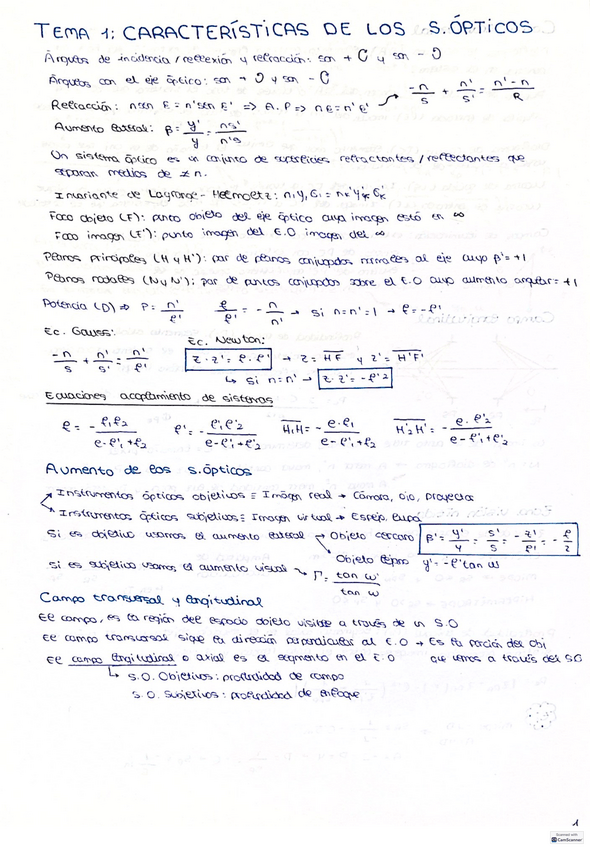 TEMA 1: CARACTERÍSTICAS DE LOS S.ÓPTICOS
Ángulos de incidencia / reflexión y refracción: son + ↻ y son - ↺
Ángulos con el eje óptico: son + ↺ y son - ↻
Refracción: n sen ε = n' sen ε' => A.P => nε = n'ε' → -n/s + n'/s' = n'-n/R
Aumento lateral: β = y'/y = ns'/n's
Un sistema óptico es un conjunto de superficies refractantes / reflectantes que
separan medios de ≠ n.
Invariante de Lagrange - Helmoltz: n₁y₁σ₁ = nₖ'yₖ'σₖ'
Foco objeto (F): punto objeto del eje óptico cuya imagen está en ∞
Foco imagen (F'): punto imagen del E.O imagen del ∞
Planos Principales (H y H'): par de planos conjugados normales al eje cuyo β' = +1
Planos nodales (N y N'): par de puntos conjugados sobre el E.O cuyo aumento angular = +1
Potencia (D) => P = n'/f' f/f' = - n/n' → si n=n'=1 → f = -f'
Ec. Gauss: Ec. Newton:
-n/s + n'/s' = n'/f' z · z' = f · f' → z = HF y z' = H'F'
↳ si n=n' → z · z' = -f'²
Ecuaciones acoplamiento de sistemas
f = - f₁f₂/e-f'₁+f₂ f' = - f'₁f'₂/e-f'₁+f'₂ H₁H = - e·f₁/e-f'₁+f₂ H'₂H' = - e·f'₂/e-f'₁+f'₂
Aumento de los s.ópticos
Instrumentos ópticos objetivos ≡ Imagen real → Cámara, ojo, proyector
Instrumentos ópticos subjetivos ≡ Imagen virtual → Espejo, lupa
Si es objetivo usamos el aumento lateral → Objeto cercano β' = y'/y = s'/s = - z'/f' = - f/z
Objeto lejano y' = -f' tan ω
Si es subjetivo usamos el aumento visual → Γ = tan ω'/tan ω
Campo transversal y longitudinal
El campo, es la región del espacio objeto visible a través de un S.O
El campo transversal sigue la dirección perpendicular al E.O → Es la porción del obj
El campo longitudinal o axial es el segmento en el E.O que vemos a través del SO
↳ S.O. Objetivos: profundidad de campo
S.O. Subjetivos: profundidad de enfoque
1
Scanned with
CamScanner